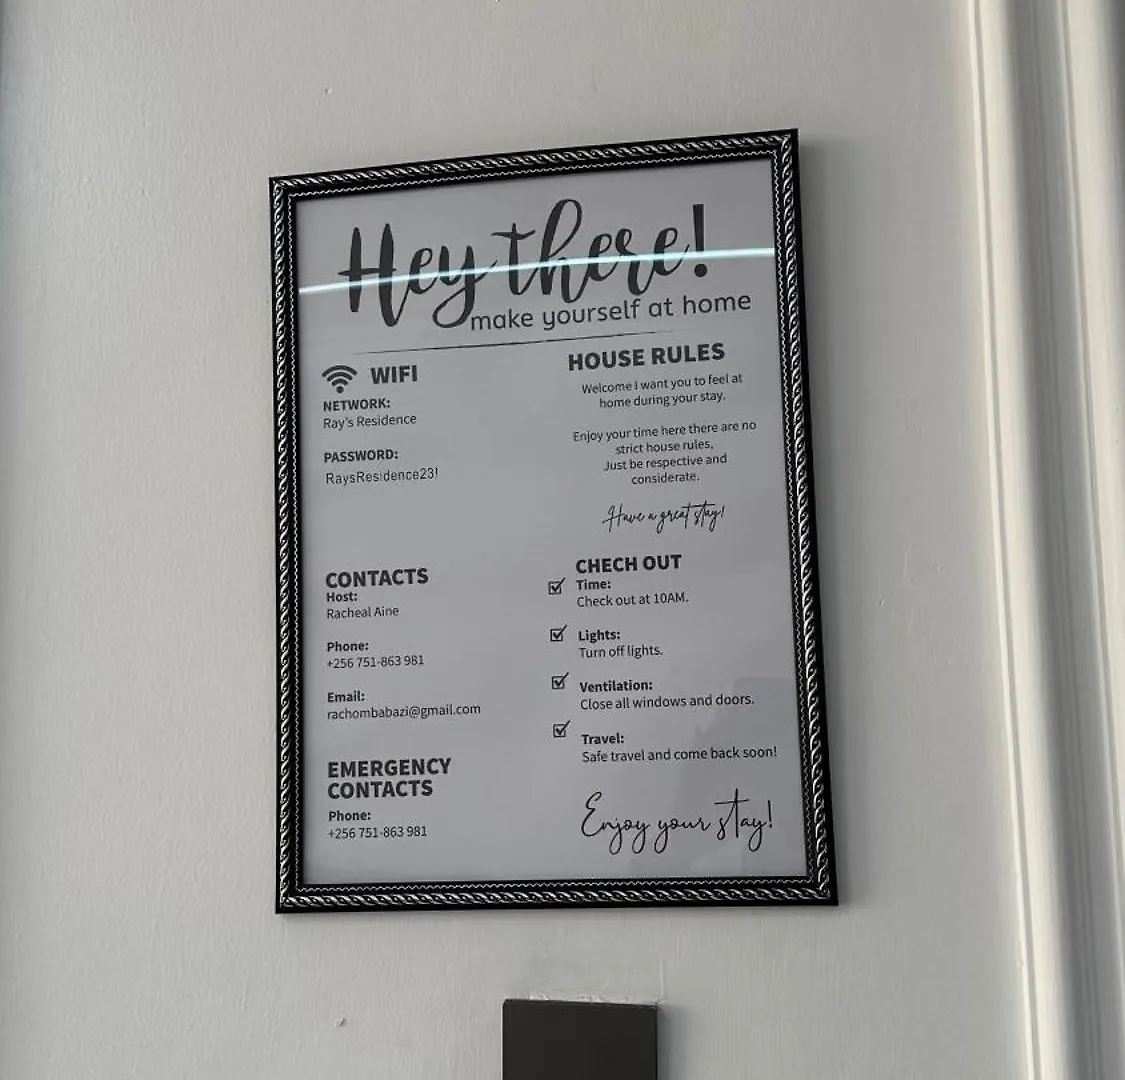 Hey there!
make yourself at home
WIFI
NETWORK:
Ray's Residence
PASSWORD:
RaysResidence23!
HOUSE RULES
Welcome I want you to feel at
home during your stay.
Enjoy your time here there are no
strict house rules,
Just be respective and
considerate.
Have a great stay!
CONTACTS
Host:
Racheal Aine
Phone:
+256 751-863 981
Email:
rachombabazi@gmail.com
EMERGENCY
CONTACTS
Phone:
+256 751-863 981
CHECH OUT
Time:
Check out at 10AM.
Lights:
Turn off lights.
Ventilation:
Close all windows and doors.
Travel:
Safe travel and come back soon!
Enjoy your stay!